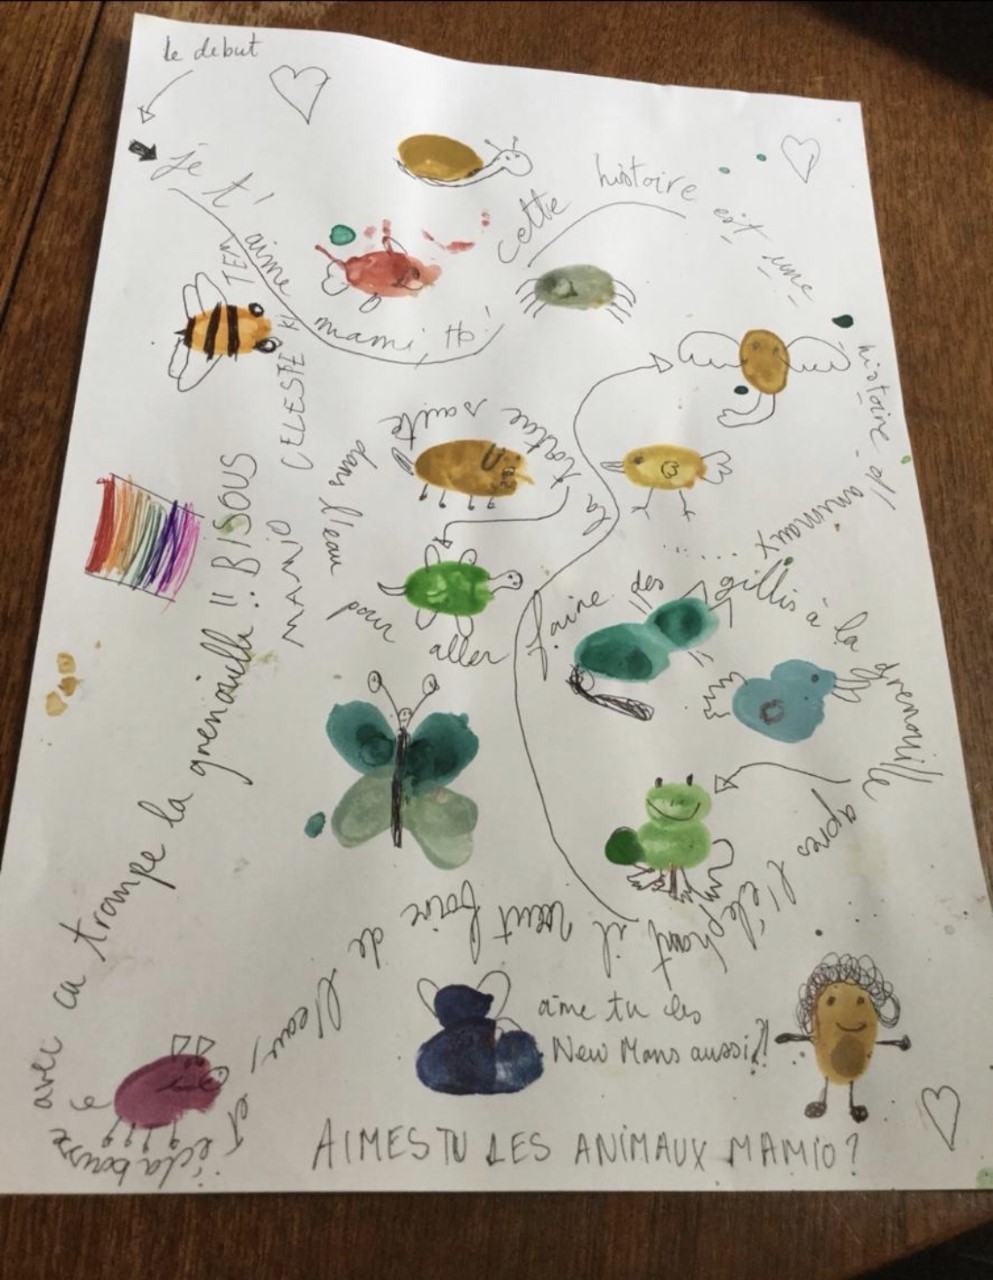 le debut
je t'aime mamiio!
cette histoire est une histoire d'animaux.......
la tortue saute dans l'eau pour aller faire des gillis à la grenouille
après l'elephant il veut boire de l'eau,
et éclabousse avec ca trompe la grenouille!! BISOUS
MAMIO
CELESTE
aime tu les
New Mans aussi?!
AIMES TU LES ANIMAUX MAMIO?